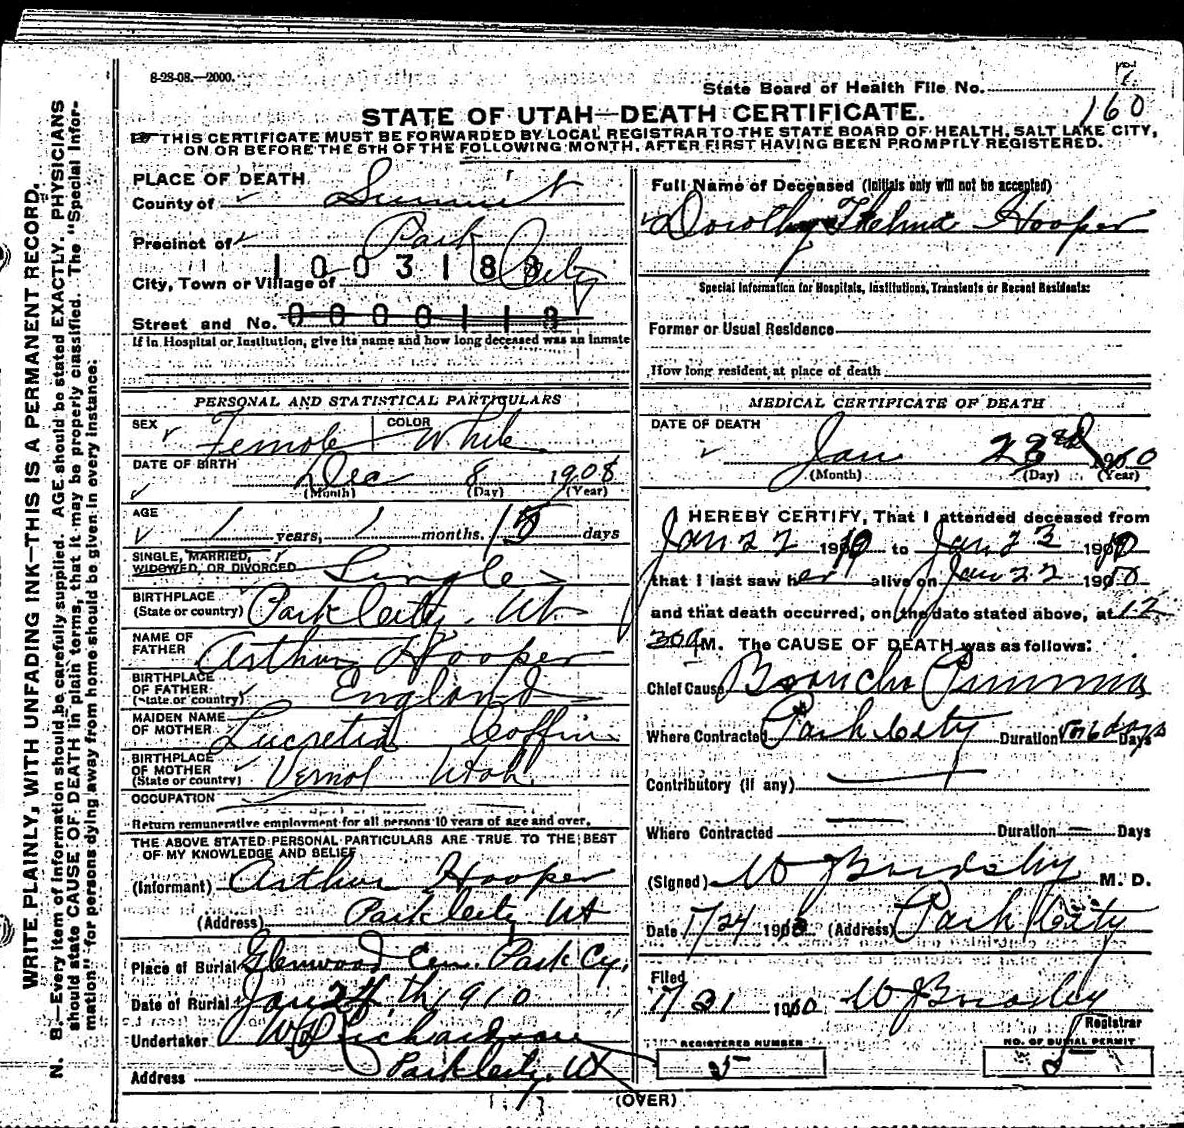 8-28-08.—2000.
State Board of Health File No.
160
STATE OF UTAH—DEATH CERTIFICATE.
THIS CERTIFICATE MUST BE FORWARDED BY LOCAL REGISTRAR TO THE STATE BOARD OF HEALTH, SALT LAKE CITY,
ON OR BEFORE THE 5TH OF THE FOLLOWING MONTH, AFTER FIRST HAVING BEEN PROMPTLY REGISTERED.
WRITE PLAINLY, WITH UNFADING INK—THIS IS A PERMANENT RECORD.
N. B.—Every item of information should be carefully supplied. AGE should be stated EXACTLY. PHYSICIANS
should state CAUSE OF DEATH in plain terms, that it may be properly classified. The "Special Infor-
mation" for persons dying away from home should be given in every instance.
PLACE OF DEATH
County of Summit
Precinct of Park
1003188
City, Town or Village of City
Street and No. 0000118
If in Hospital or Institution, give its name and how long deceased was an inmate
PERSONAL AND STATISTICAL PARTICULARS
SEX Female COLOR White
DATE OF BIRTH Dec 8 1908
(Month) (Day) (Year)
AGE 1 years, 1 months, 15 days
SINGLE, MARRIED,
WIDOWED, OR DIVORCED Single
BIRTHPLACE
(State or country) Park City, Ut
NAME OF
FATHER Arthur Hooper
BIRTHPLACE
OF FATHER
(State or country) England
MAIDEN NAME
OF MOTHER Lucretia Coffin
BIRTHPLACE
OF MOTHER
(State or country) Vernal Utah
OCCUPATION
Return remunerative employment for all persons 10 years of age and over.
THE ABOVE STATED PERSONAL PARTICULARS ARE TRUE TO THE BEST
OF MY KNOWLEDGE AND BELIEF
(Informant) Arthur Hooper
(Address) Park City Ut
Place of Burial Glenwood Cem. Park Cy.
Date of Burial Jan 24th 1910
Undertaker W Richardson
Address Park City, Ut
Full Name of Deceased (Initials only will not be accepted)
Dorothy Thelma Hooper
Special Information for Hospitals, Institutions, Transients or Recent Residents:
Former or Usual Residence
How long resident at place of death
MEDICAL CERTIFICATE OF DEATH
DATE OF DEATH
Jan 23rd 1910
(Month) (Day) (Year)
I HEREBY CERTIFY, That I attended deceased from
Jan 22 1910 to Jan 23 1910
that I last saw her alive on Jan 22 190
and that death occurred, on the date stated above, at 12
30 a M. The CAUSE OF DEATH was as follows:
Chief Cause Broncho Pneumonia
Where Contracted Park City Duration 6 days Days
Contributory (if any)
Where Contracted Duration Days
(Signed) W J Bardsley M. D.
Date 1/24 190 (Address) Park City
Filed
1/21 1910 W J Bardsley
Registrar
REGISTERED NUMBER
5
NO. OF BURIAL PERMIT
5
(OVER)